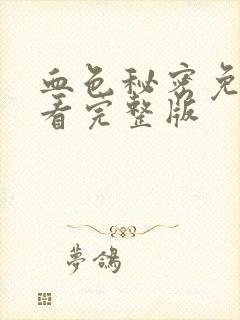 血色秘密免
看完整版
夢鴿